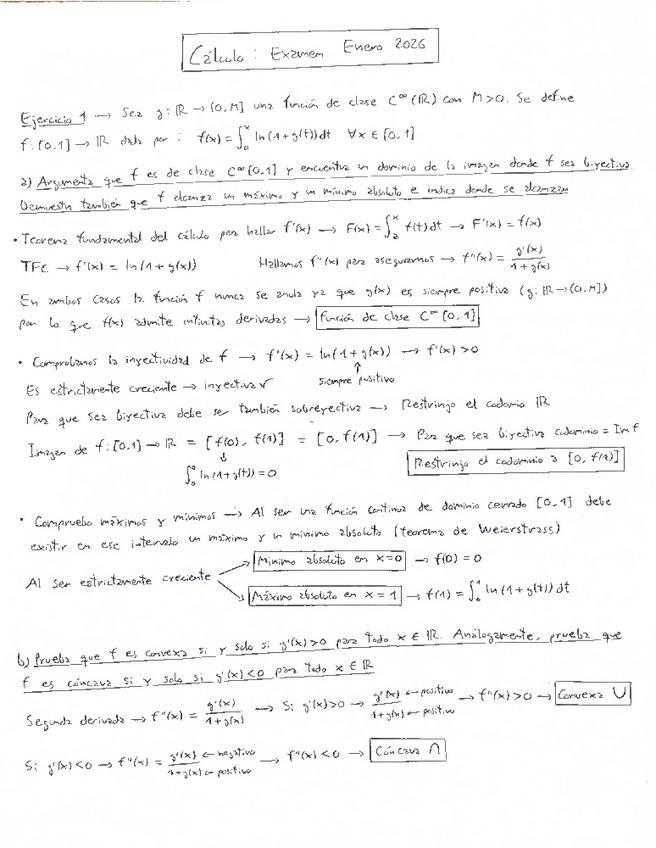 Cálculo: Examen Enero 2026
Ejercicio 1 → Sea g: ℝ → (0, M] una función de clase C^∞(ℝ) con M>0. Se define
f: [0,1] → ℝ dada por: f(x) = ∫₀ˣ ln(1+g(t))dt ∀x ∈ [0,1]
a) Argumenta que f es de clase C^∞[0,1] y encuentra un dominio de la imagen donde f sea biyectiva.
Demuestra también que f alcanza un máximo y un mínimo absoluto e indica donde se alcanzan
• Teorema fundamental del cálculo para hallar f'(x) → F(x) = ∫ₐˣ f(t)dt → F'(x) = f(x)
TFC → f'(x) = ln(1+g(x)) Hallamos f''(x) para asegurarnos → f''(x) = g'(x)/(1+g(x))
En ambos casos la función f nunca se anula ya que g(x) es siempre positiva (g: ℝ → (0,M])
por lo que f(x) admite infinitas derivadas → función de clase C^∞[0,1]
• Comprobamos la inyectividad de f → f'(x) = ln(1+g(x)) → f'(x) > 0
Es estrictamente creciente → inyectiva ✓ siempre positivo
Para que sea biyectiva debe ser también sobreyectiva → Restrinjo el codomio ℝ
Imagen de f: [0,1] → ℝ = [f(0), f(1)] = [0, f(1)] → Para que sea biyectiva codominio = Im f
∫₀⁰ ln(1+g(t)) = 0 Restrinjo el codominio a [0, f(1)]
• Comprueba máximos y mínimos → Al ser una función continua de dominio cerrado [0,1] debe
existir en ese intervalo un máximo y un mínimo absoluto (teorema de Weierstrass)
Mínimo absoluto en x=0 → f(0) = 0
Al ser estrictamente creciente
Máximo absoluto en x=1 → f(1) = ∫₀¹ ln(1+g(t))dt
b) Prueba que f es convexa si y solo si g'(x)>0 para todo x ∈ ℝ. Análogamente, prueba que
f es cóncava si y solo si g'(x)<0 para todo x ∈ ℝ
Segunda derivada → f''(x) = g'(x)/(1+g(x)) → Si g'(x)>0 → g'(x) ← positivo / 1+g(x) ← positivo → f''(x)>0 → Convexa ∪
Si g'(x)<0 → f''(x) = g'(x) ← negativo / 1+g(x) ← positivo → f''(x)<0 → Cóncava ∩